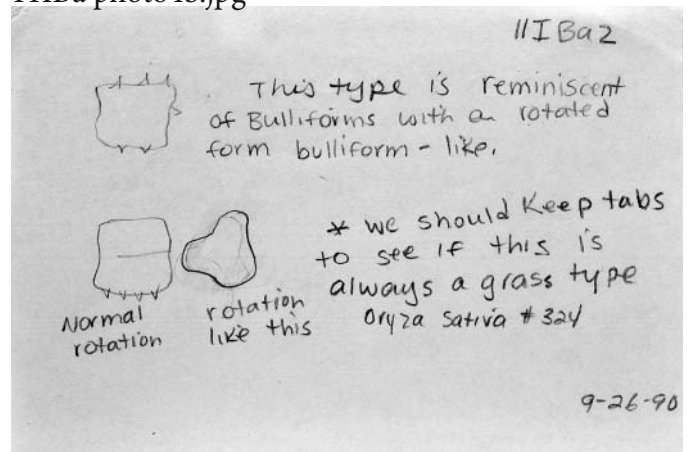 11IBa2
This type is reminiscent
of Bulliforms with a rotated
form bulliform-like.
* we should Keep tabs
to see if this is
always a grass type
Oryza Sativa # 324
Normal
rotation
rotation
like this
9-26-90